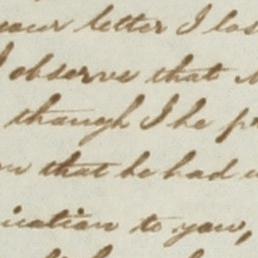 your letter I los
I observe that
though I he pr
that he had
ication to you,